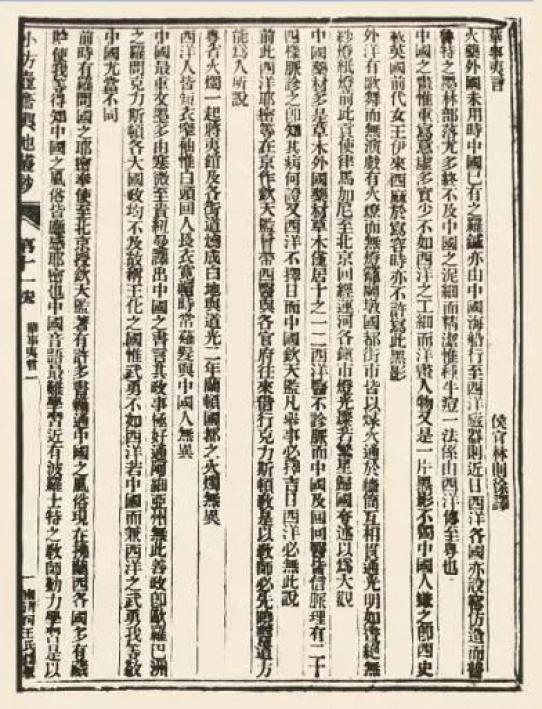 華事夷言　侯官林則徐譯
火藥外國未用時中國已有之羅鍼亦由中國海船行至西洋磁器則近日西洋各國亦設窰仿造而普
魯特之墨林部落尤多終不及中國之泥細而精潔惟種牛痘一法係由西洋傳至粵也
中國之畫惟重寫意虛多實少不如西洋之工細而洋畫人物又是一片黑影不獨中國人嫌之卽西史
載英國前代女王伊來西麻於寫容時亦不許寫此黑影
外洋有歌舞而無演戲有火燎而無燈籠蘭墩國都街市皆以煤火通於墻筒互相貫通光明如晝絕無
紗燈紙燈前此貢使律馬加尼至北京回經運河各鎭市燈光璨若繁星歸國夸述以爲大觀
中國藥材多是草木外國藥材草木僅居十之一二西洋醫不診脈而中國及回回醫皆信脈理有二十
四樣脈診之卽知其病何證又西洋不擇日而中國欽天監凡舉事必擇吉日西洋必無此說
前此西洋耶密等在京作欽天監曾帶西醫與各官府往來借行克力斯頓敎是以敎師必先曉醫道方
能爲人所說
粵省火燭一起將夷館及各街道燒成白地與道光二年蘭頓國都之火燭無異
西洋人皆短衣窄袖惟白頭回人長衣寬襴時常薙髮與中國人無異
中國最重文墨多由寒微至貴紐曼譯出中國之書言其政事極好通阿細亞州無此善政卽歐羅巴洲
之羅問克力斯頓各大國政均不及故稱王化之國惟武勇不如西洋若中國而兼西洋之武勇我等敘
中國尤當不同
前時有羅問國之耶密奉使至北京授欽天監著有許多書籍通中國之風俗現在拂蘭西各國多有藏
貯使我等得知中國之風俗皆應感耶密也中國音語最難學習近有波羅士特之敎師勤力學習是以
小方壺齋輿地叢鈔　第十一帙　華事夷言　一　南清河王氏